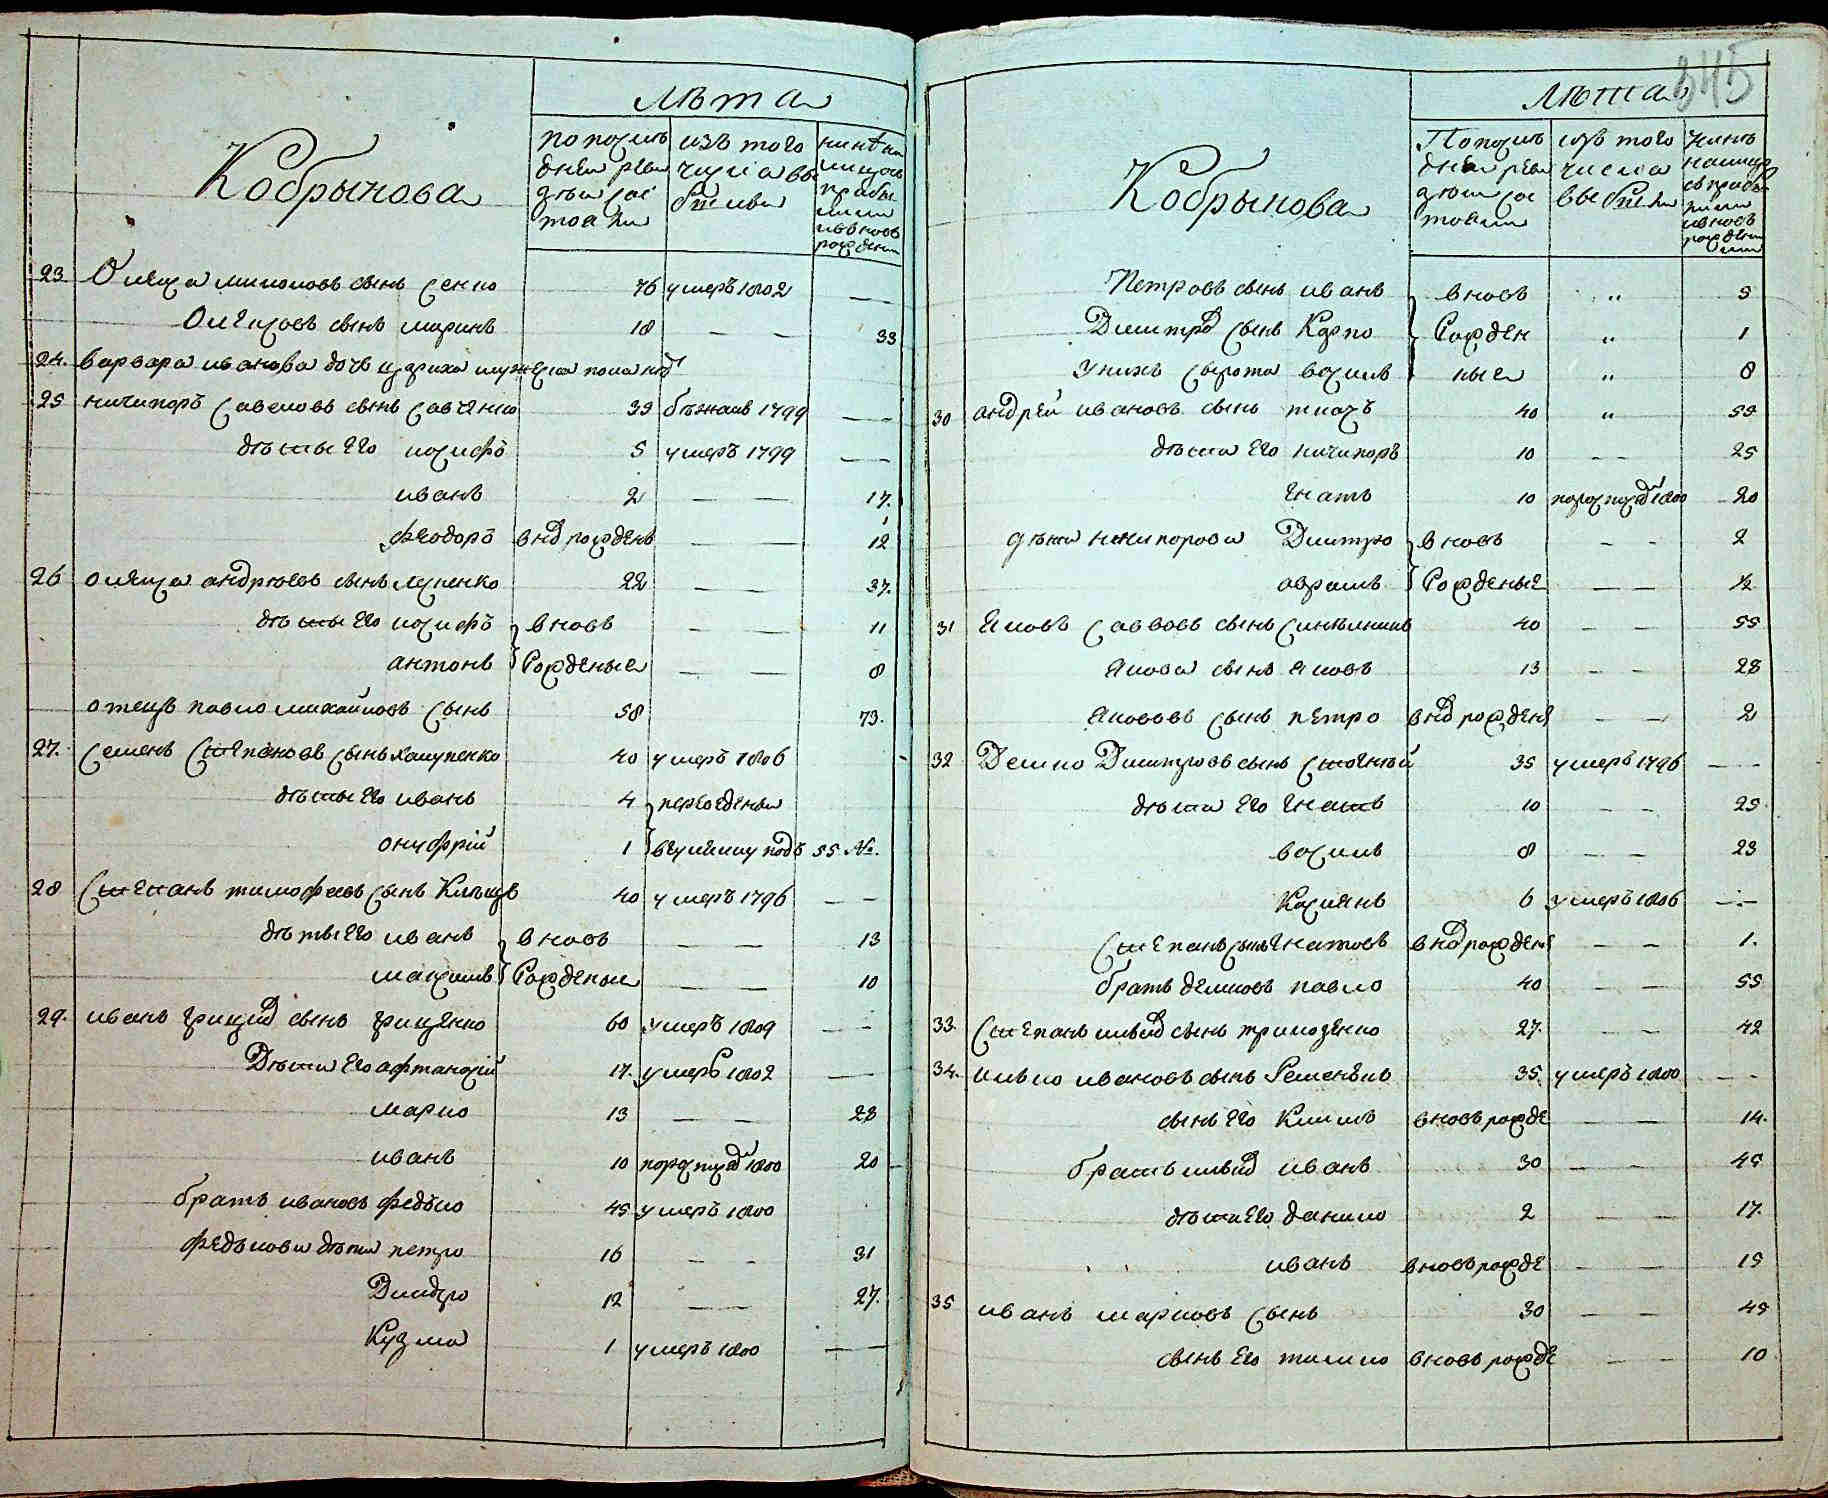 лѣта
Кобрынова
по послѣ
дней реви
зіи сос
тояли
изъ того
числа вы
было
нынѣ на
лицо съ
прибы
лыми
и вновь
рожден
23 Олекса мироновъ сынъ сенко 76 умеръ 1802 —
Олексовъ сынъ маринъ 18 — — 33
24. варвара иванова дочь
25 ничипоръ савеловъ сынъ савченко 39 бѣжалъ 1799 —
дѣты его иосифъ 5 умеръ 1799 —
иванъ 2 — — 17.
феодоръ внов рожденъ — — 12
26 олекса андрѣевъ сынъ лупенко 22 — — 37.
дѣты его иосифъ вновь — — 11
антонъ рожденые — — 8
отецъ павло михайловъ сынъ 58 73.
27. семенъ степановъ сынъ халупенко 40 умеръ 1806
дѣты его иванъ 4 переведены
онуфрій 1 въ училищу подъ 55 №.
28 степанъ тимофеевъ сынъ Клѣщъ 40 умеръ 1796 —
дѣты его иванъ вновь — — 13
максимъ рожденые — — 10
29. иванъ грицковъ сынъ гриценко 60 умеръ 1809 —
Дѣти его афтаносій 17. умеръ 1802 —
марко 13 — — 28
иванъ 10 1800 20
братъ ивановъ федько 45 умеръ 1800
федькови дѣти петро 16 — — 31
Дмидро 12 — — 27.
Кузма 1 умеръ 1800 —
345
лѣта
Кобрынова
По послѣ
дней реви
зіи сос
тояли
изъ того
числа
выбыли
нынѣ
налицо
съ прибы
лыми
и вновь
рожден
ными
Петровъ сынъ иванъ вновь " 5
Димитров сынъ Карпо Рожден " 1
у нихъ сырота василь ные " 8
30 андрей ивановъ сынъ ткачъ 40 " 55
дѣти его ничипоръ 10 — — 25
Гнатъ 10 1800 20
дѣти ничипорови Дмитро вновь — — 2
аврамъ Рожденые — — ½
31 Яковъ саввовъ сынъ 40 — — 55
Якова сынъ Яковъ 13 — — 28
Якововъ сынъ петро внов рожденъ — — 2
32 Демко Дмитровъ сынъ 35 умеръ 1796 —
дѣти его Гнатъ 10 — — 25
василь 8 — — 23
Касиянъ 6 умеръ 1806 —
степанъ сынъ Гнатовъ внов рожден — — 1.
братъ демковъ павло 40 — — 55
33. степанъ сынъ 27. — — 42
34. илько ивановъ сынъ Ременѣкъ 35. умеръ 1800 —
сынъ его Климъ вновь рожде — — 14.
братъ ильков иванъ 30 — — 45
дѣти его данило 2 — — 17.
иванъ вновь рожде — — 15
35 иванъ марковъ сынъ 30 — — 45
сынъ его тимко вновь рожде — — 10